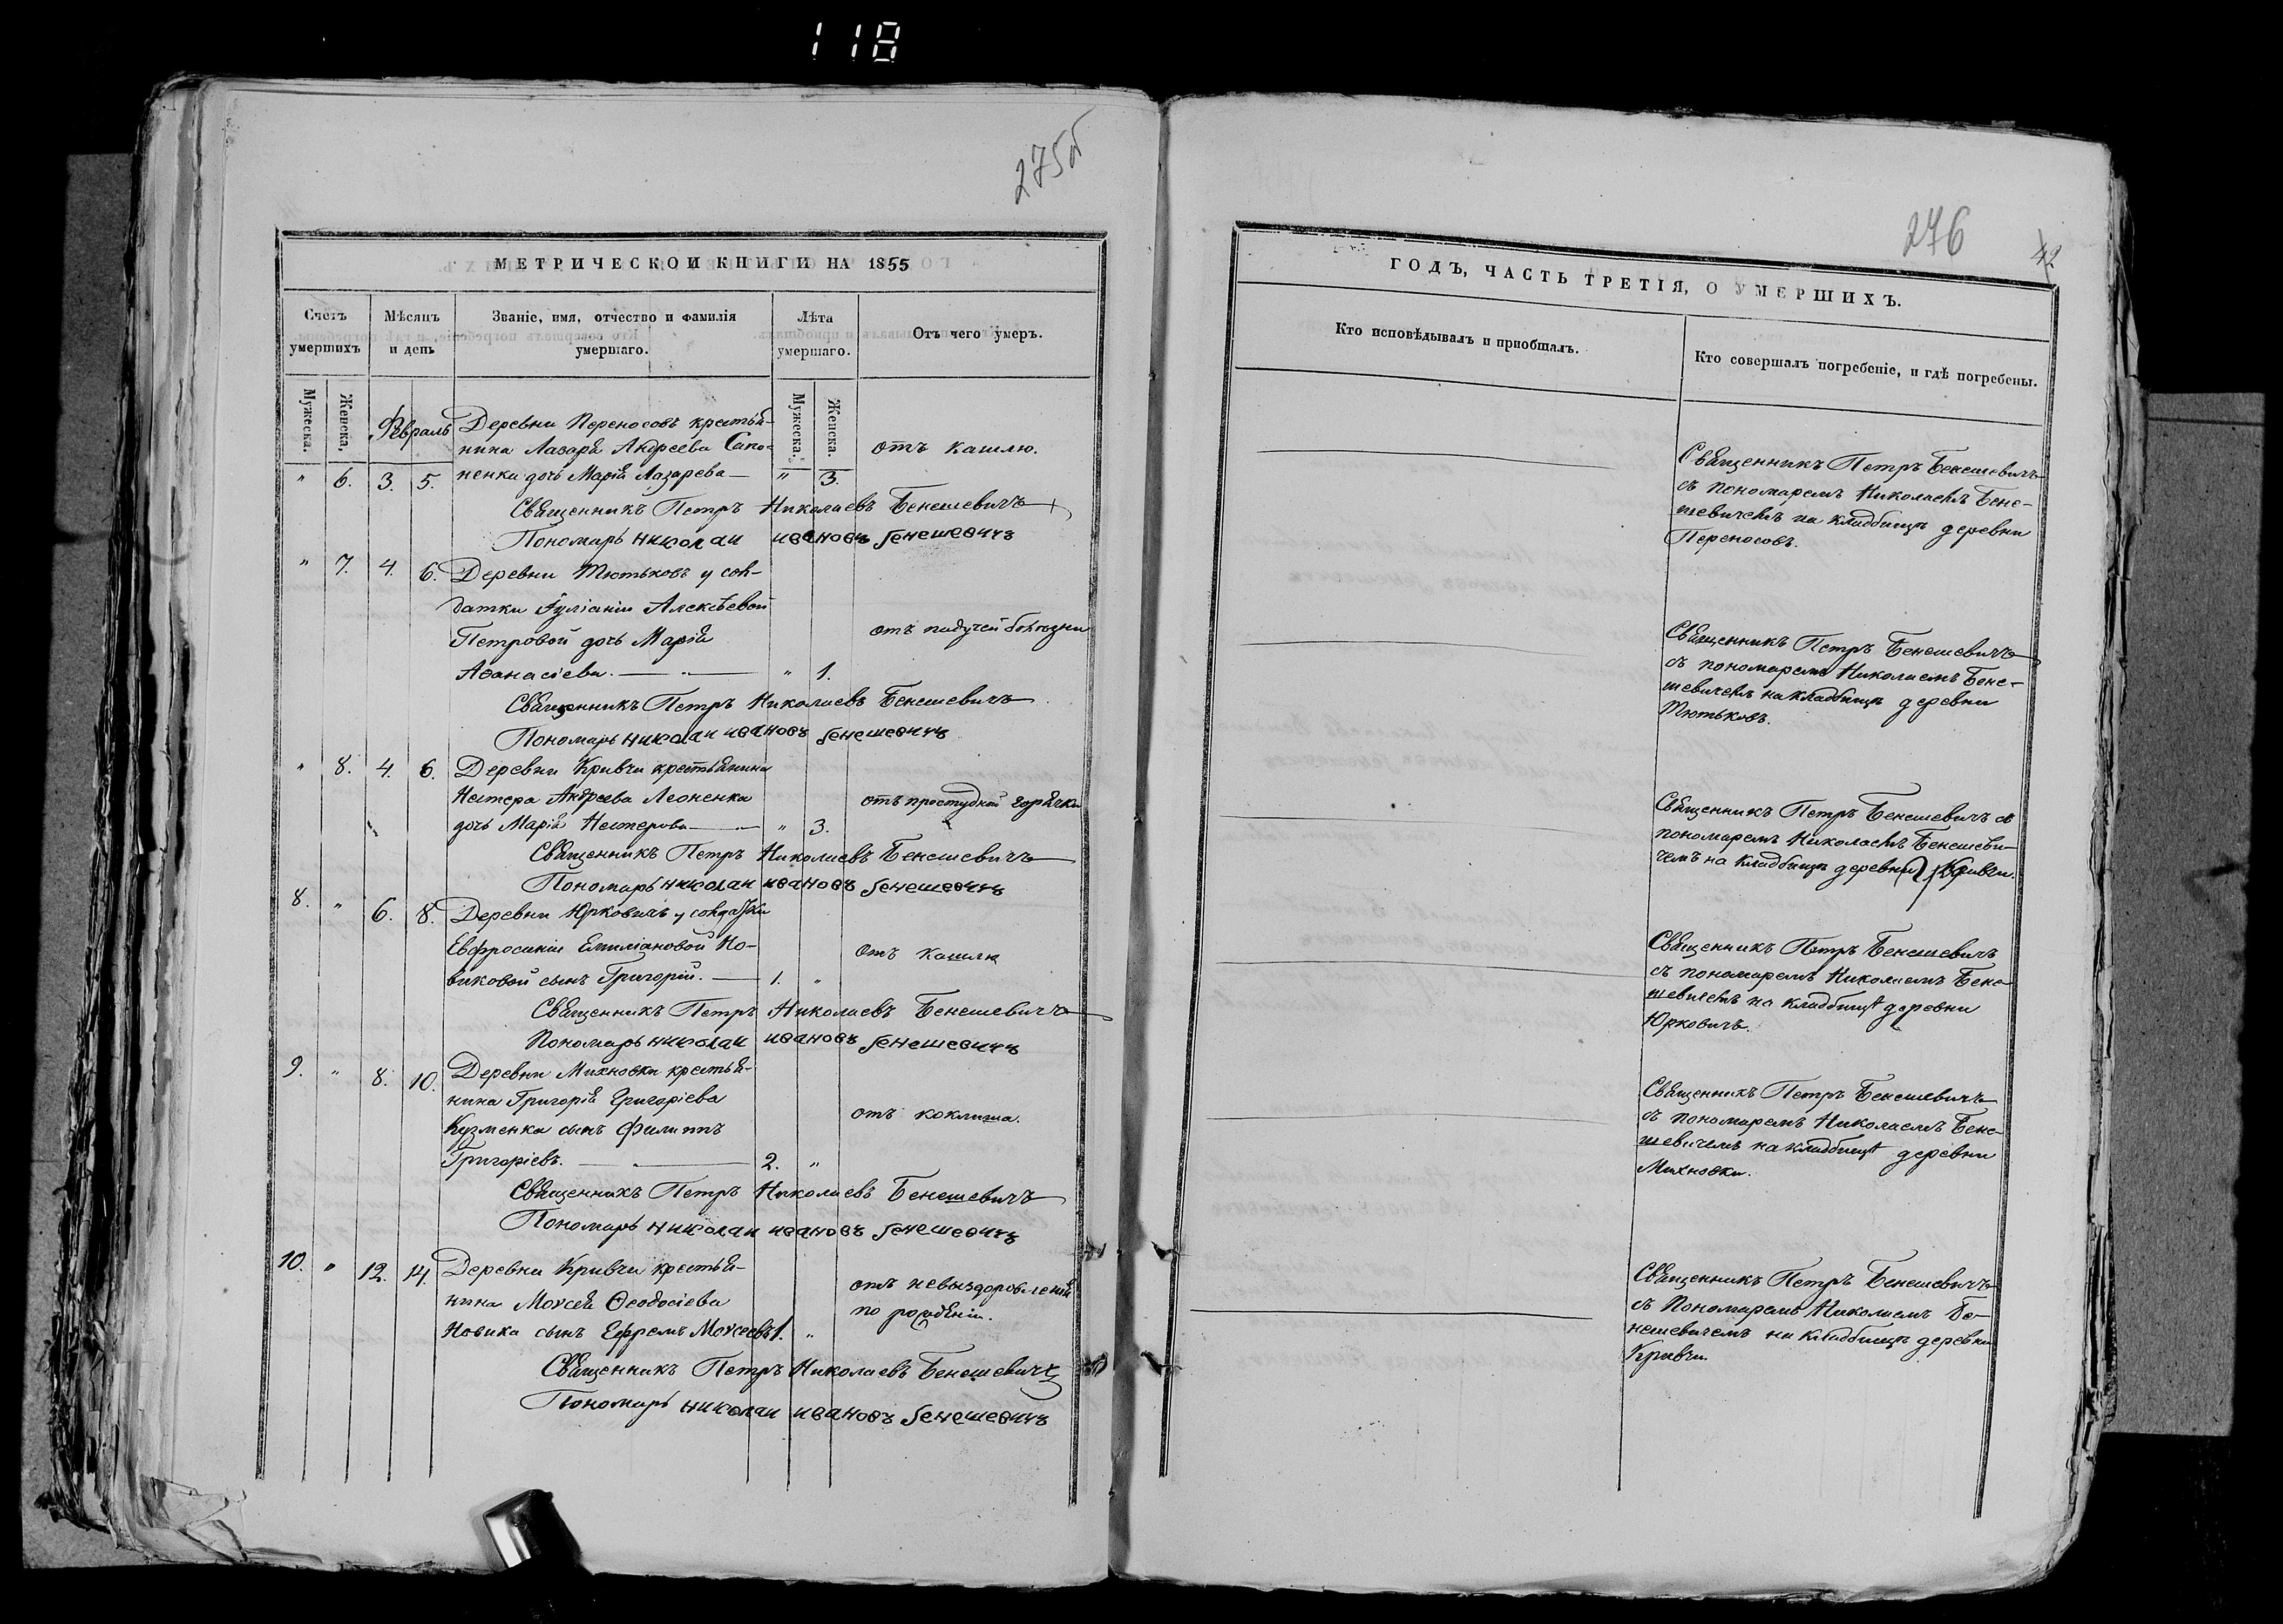 118
275об
МЕТРИЧЕСКОЙ КНИГИ НА 1855
Счетъ умершихъ
Мѣсяцъ и день
Званіе, имя, отчество и фамилія умершаго.
Лѣта умершаго.
Отъ чего умеръ.
Мужеска.
Женска.
Мужеска.
Женска.
Февраль
Деревни Переносовъ крестья-
нина Лазаря Андреева Сапо-
" 6. 3. 5. ненка дочь Марія Лазарева — " 3.
отъ кашлю.
Священникъ Петръ Николаевъ Бенешевичъ
Пономарь николаи ивановъ бенешевичъ
" 7. 4. 6. Деревни Тютьковъ у сол-
датки Іуліаніи Алексѣевой
Петровой дочь Марія
Аѳанасіева. — " — " 1.
отъ падучей болѣзни
Священникъ Петръ Николаевъ Бенешевичъ
Пономарь николаи ивановъ бенешевичъ
" 8. 4. 6. Деревни Кривчи крестьянина
Нестера Андреева Леоненка
дочь Марія Нестерова — " — " 3.
отъ простудной горячки
Священникъ Петръ Николаевъ Бенешевичъ
Пономарь николаи ивановъ бенешевичъ
8. " 6. 8. Деревни Юрковичъ у солдатки
Евфросиніи Емиліановой Но-
виковой сынъ Григорій. — 1. "
отъ кашля
Священникъ Петръ Николаевъ Бенешевичъ
Пономарь николаи ивановъ бенешевичъ
9. " 8. 10. Деревни Михновки крестья-
нина Григорія Григоріева
Кузменка сынъ Филиппъ
Григоріевъ. — " — 2. "
отъ коклюша.
Священникъ Петръ Николаевъ Бенешевичъ
Пономарь николаи ивановъ бенешевичъ
10. " 12. 14. Деревни Кривчи крестья-
нина Моѵсея Ѳеодосіева
Новика сынъ Ефремъ Моѵсеевъ 1. "
отъ невыздоровленія
по рожденіи.
Священникъ Петръ Николаевъ Бенешевичъ
Пономарь николаи ивановъ бенешевичъ
276
42
ГОДЪ, ЧАСТЬ ТРЕТІЯ, О УМЕРШИХЪ.
Кто исповѣдывалъ и приобщалъ.
Кто совершалъ погребеніе, и гдѣ погребены.
Священникъ Петръ Бенешевичъ
съ пономаремъ Николаемъ Бене-
шевичемъ на кладбищѣ деревни
Переносовъ.
Священникъ Петръ Бенешевичъ
съ пономаремъ Николаемъ Бене-
шевичемъ на кладбищѣ деревни
Тютьковъ.
Священникъ Петръ Бенешевичъ съ
пономаремъ Николаемъ Бенешеви-
чемъ на кладбищѣ деревни Кривчи.
Священникъ Петръ Бенешевичъ
съ пономаремъ Николаемъ Бене-
шевичемъ на кладбищѣ деревни
Юрковичъ.
Священникъ Петръ Бенешевичъ
съ пономаремъ Николаемъ Бене-
шевичемъ на кладбищѣ деревни
Михновки.
Священникъ Петръ Бенешевичъ
съ Пономаремъ Николаемъ Бе-
нешевичемъ на кладбищѣ деревни
Кривчи.